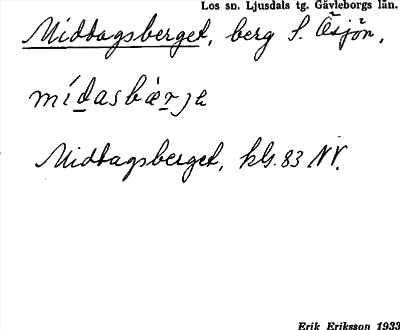 Los sn. Ljusdals tg. Gävleborgs län.
Middagsberget, berg S. Åsjön,
mídasbærje
Middagsberget, kbl. 83 NV.
Erik Eriksson 1933